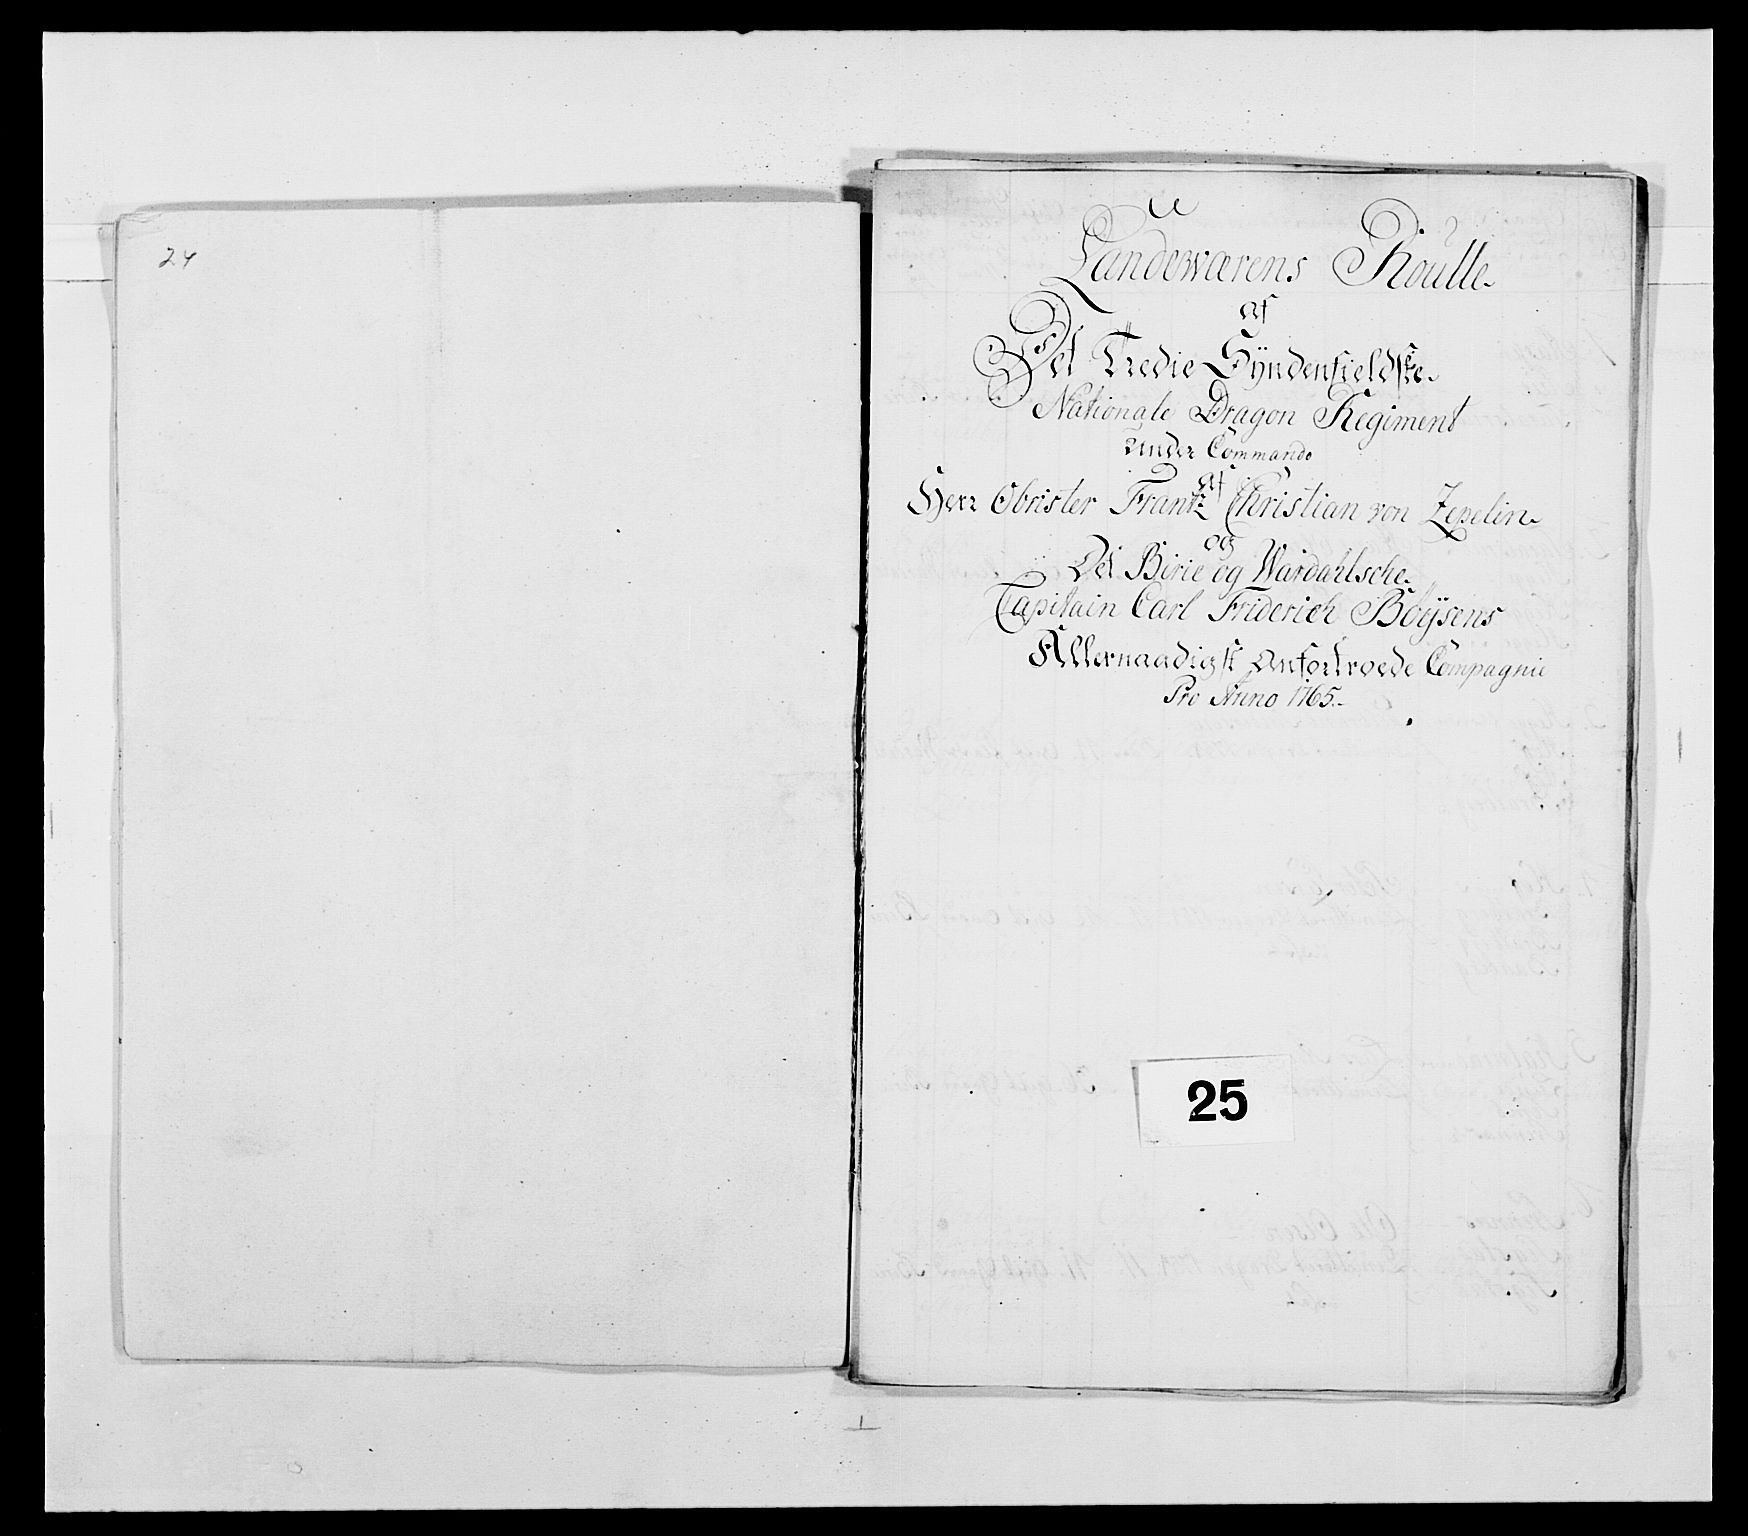 24
Landewærens Roulle
af
Det Tredie Syndenfieldske
Nationale Dragon Regiment
Under Commando
Af
Herr Obrister Frantz Christian von Zepelin
og
Det Birie og Wardahlsche
Capitain Carl Friderich Boÿsens
Allernaadigst Anfortroede Compagnie
Pro Anno 1765
25